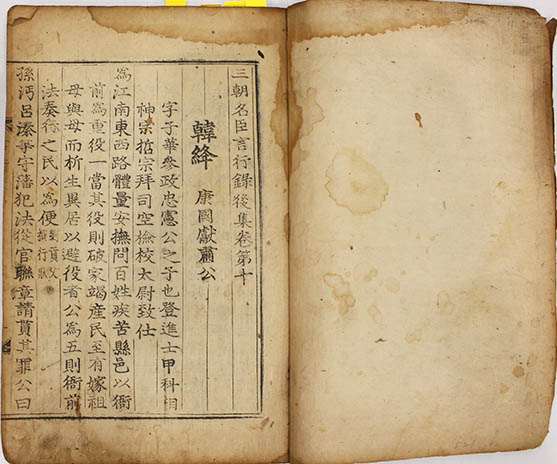 三朝名臣言行錄後集卷第十
韓絳 康國獻肅公
字子華參政忠憲公之子也登進士甲科相
神宗悊宗拜司空檢校太尉致仕
為江南東西路體量安撫問百姓疾苦縣邑以衙
前為重役一當其役則破家竭產民至有嫁祖
母與母而析生異居以避役者公為五則衙前
法奏行之民以為便
孫沔呂溱等守藩犯法從官聯章請貰其罪公曰